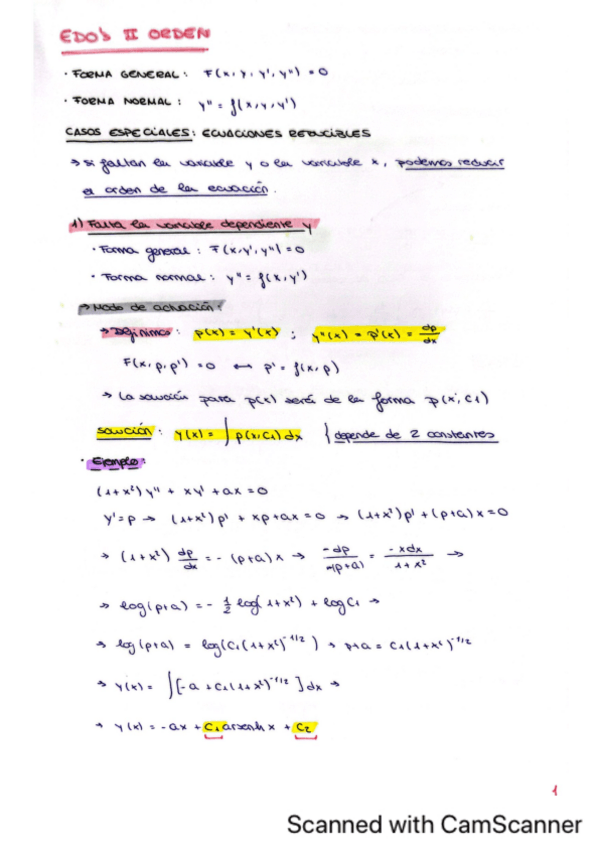 EDO's II ORDEN
· FORMA GENERAL: F(x, y, y', y'') = 0
· FORMA NORMAL: y'' = f(x, y, y')
CASOS ESPECIALES: ECUACIONES REDUCIBLES
→ si faltan la variable y o la variable x, podemos reducir
el orden de la ecuación.
1) Falta la variable dependiente y
· Forma general: F(x, y', y'') = 0
· Forma normal: y'' = f(x, y')
→ Modo de actuación:
→ Definimos: p(x) = y'(x) ; y''(x) = p'(x) = dp/dx
F(x, p, p') = 0 ↔ p' = f(x, p)
→ La solución para p(x) será de la forma p(x, C1)
solución: y(x) = ∫ p(x, C1) dx { depende de 2 constantes
· Ejemplo:
(1+x²) y'' + xy' + ax = 0
y' = p → (1+x²) p' + xp + ax = 0 → (1+x²) p' + (p+a) x = 0
→ (1+x²) dp/dx = - (p+a) x → -dp/-(p+a) = -xdx/1+x² →
→ log(p+a) = - 1/2 log(1+x²) + log C1 →
→ log(p+a) = log(C1(1+x²)^-1/2) → p+a = C1(1+x²)^-1/2
→ y(x) = ∫[-a + C1(1+x²)^-1/2] dx →
→ y(x) = -ax + C1 arsenh x + C2
1
Scanned with CamScanner